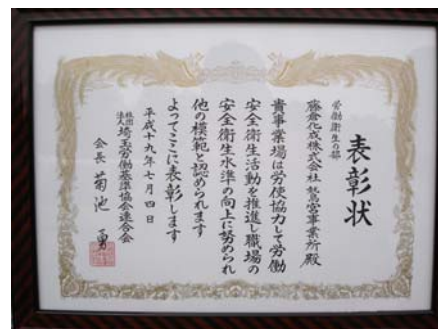 表彰状
労働衛生の部
藤倉化成株式会社 鷲宮事業所殿
貴事業場は労使協力して労働
安全衛生活動を推進し職場の
安全衛生水準の向上に努められ
他の模範と認められます
よってここに表彰します
平成十九年七月四日
社団法人 埼玉労働基準協会連合会
会長 菊池 勇